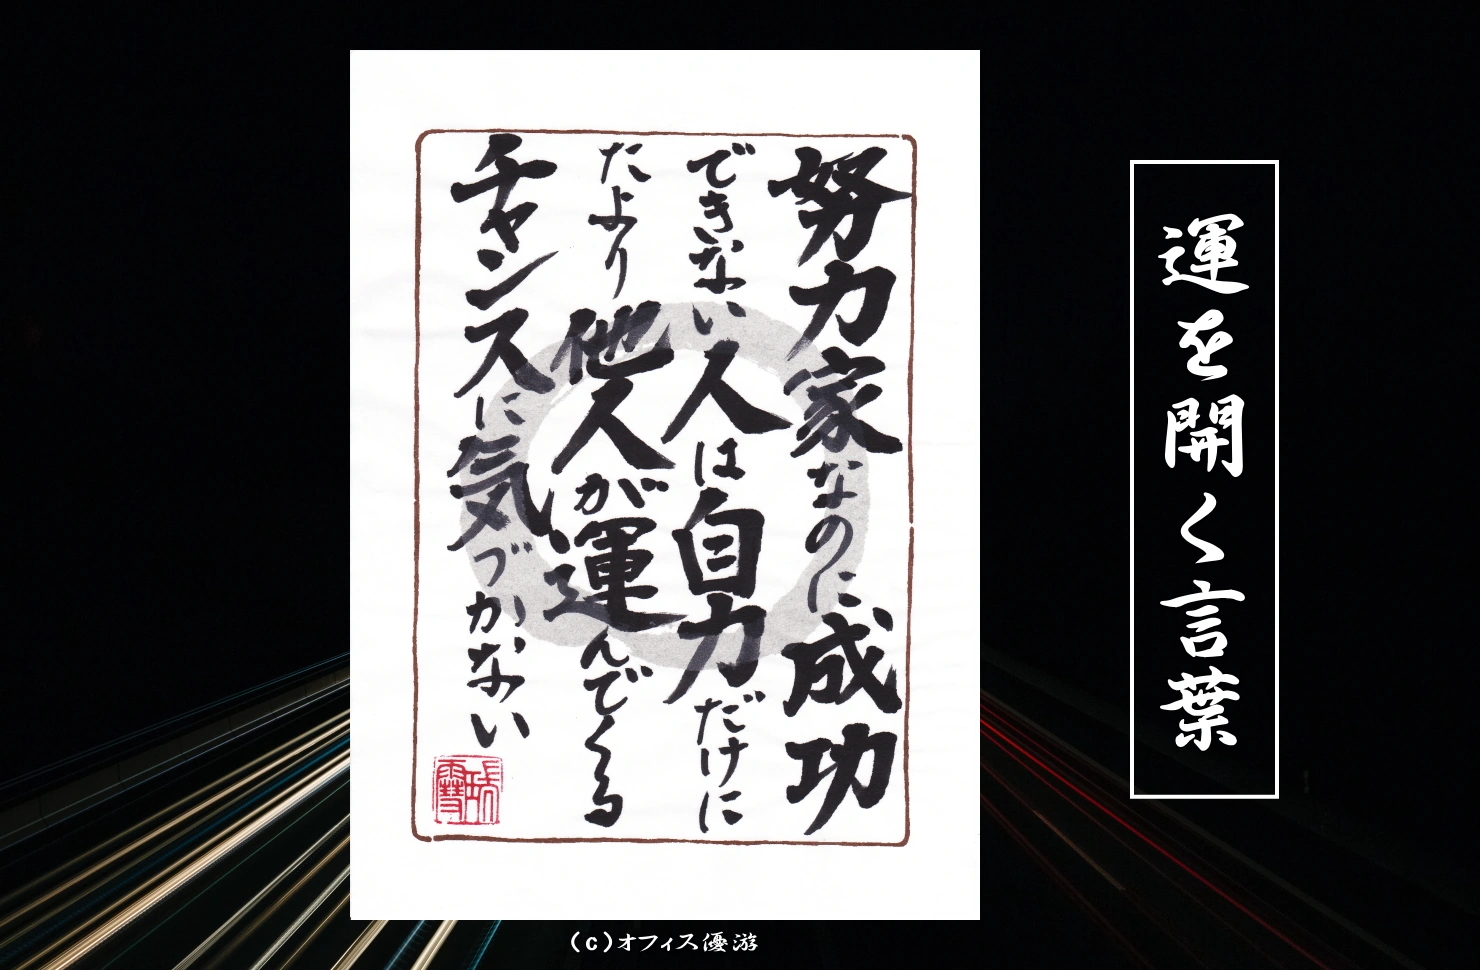 運を開く言葉
努力家なのに成功
できない人は自力だけに
たより他人が運んでくる
チャンスに気づかない
(c)オフィス優游